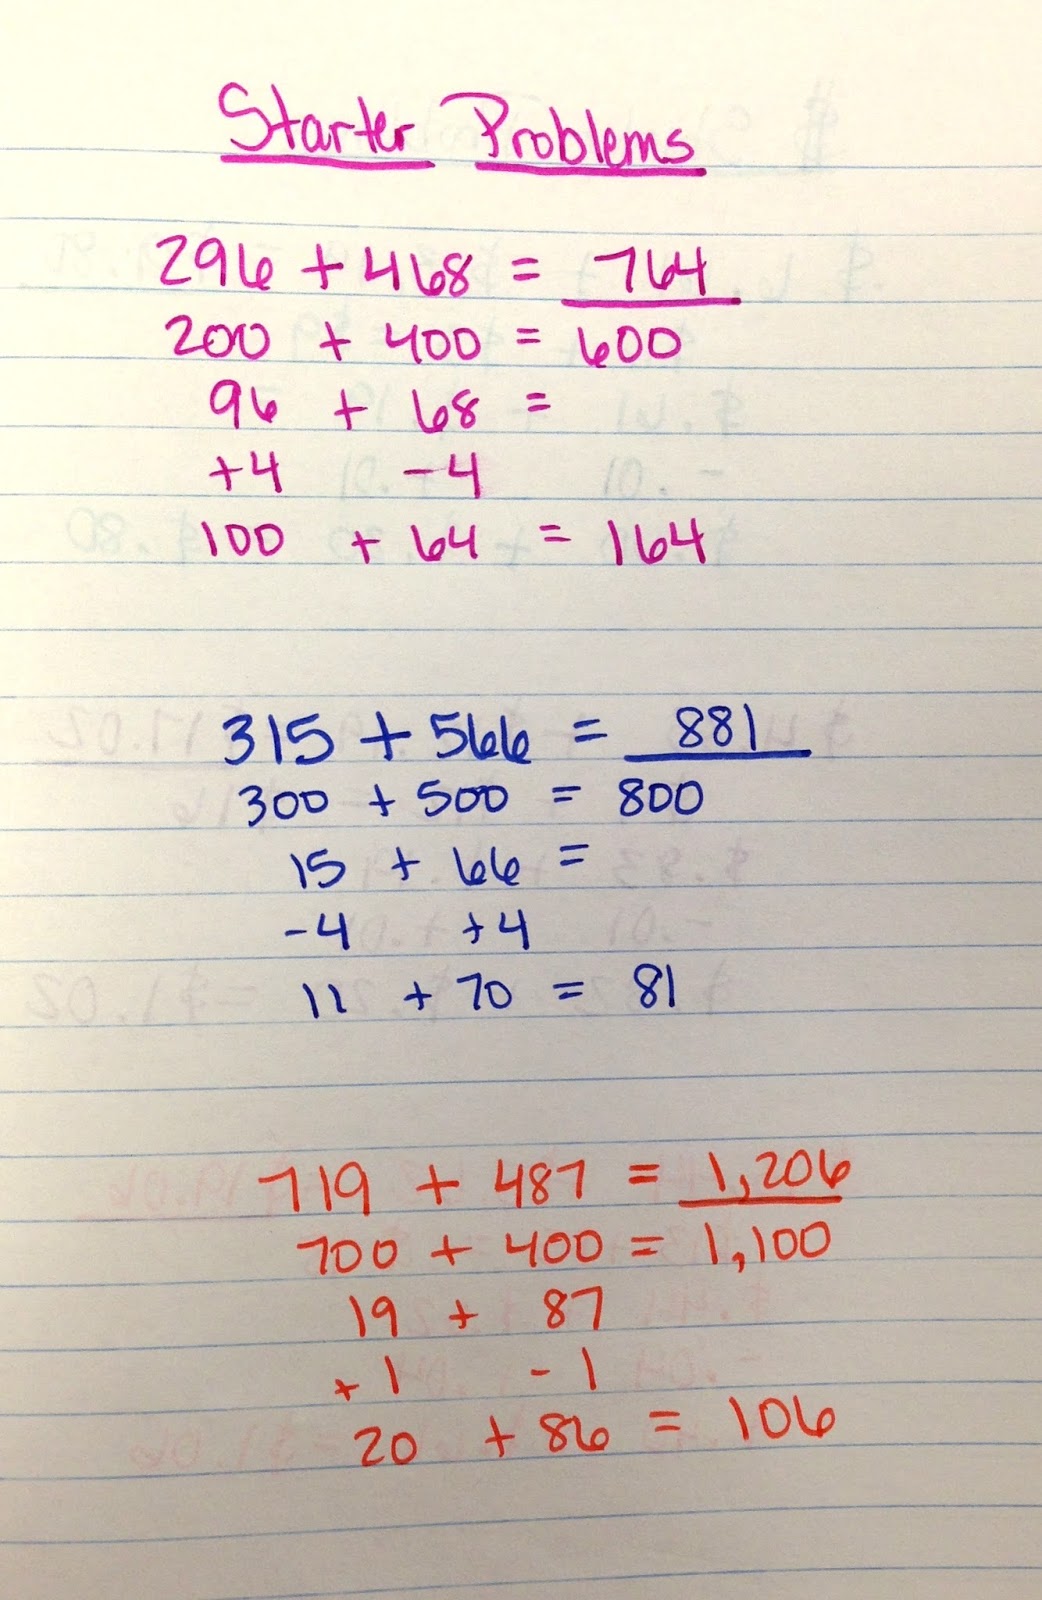 Starter Problems
296 + 468 = 764
200 + 400 = 600
96 + 68 =
+4 -4
100 + 64 = 164
315 + 566 = 881
300 + 500 = 800
15 + 66 =
-4 +4
11 + 70 = 81
719 + 487 = 1,206
700 + 400 = 1,100
19 + 87
+1 -1
20 + 86 = 106